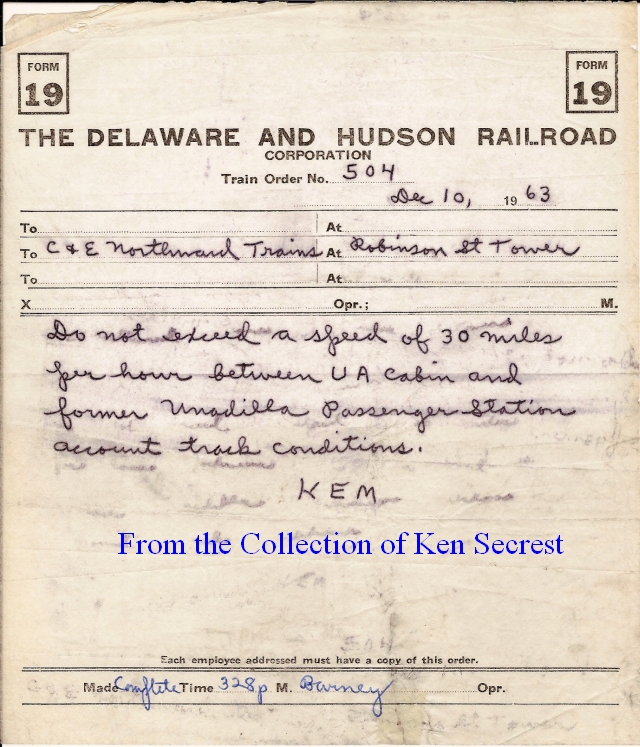 FORM 19 FORM 19
THE DELAWARE AND HUDSON RAILROAD
CORPORATION
Train Order No. 504
Dec 10, 1963
To At
To C & E Northward Trains At Robinson St Tower
To At
X Opr.; M.
Do not exceed a speed of 30 miles
per hour between U A Cabin and
former Unadilla Passenger Station
account track conditions.
K E M
From the Collection of Ken Secrest
Each employee addressed must have a copy of this order.
Made Complete Time 328p M. Barney Opr.